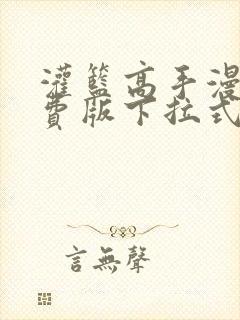 灌籃高手漫
費版下拉式
言無聲